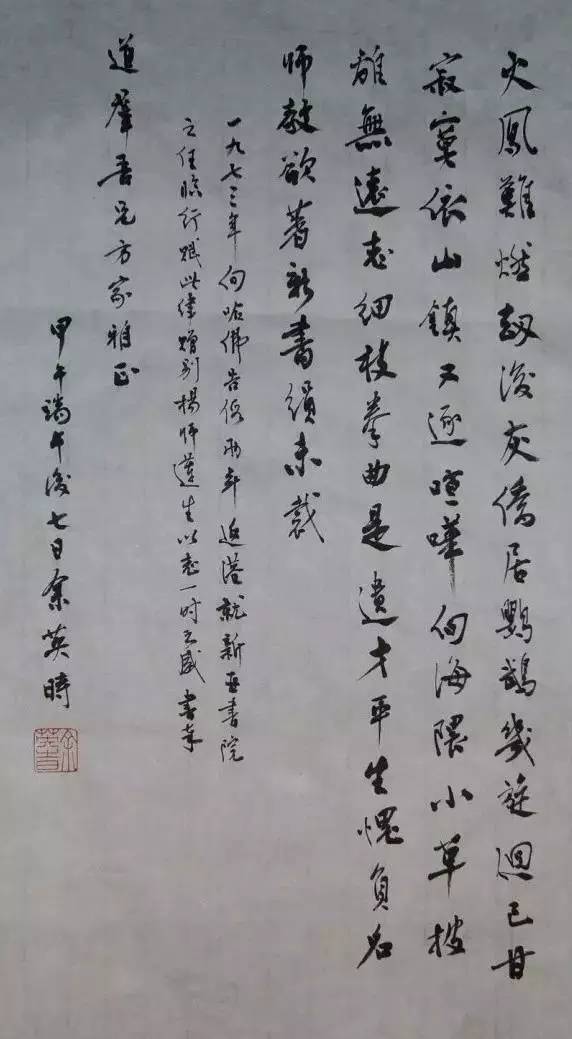 火鳳難燃劫後灰僑居鸚鵡幾旋迴已甘
寂寞依山鎮又逐喧嘩向海隈小草披
離無遠志細枝拳曲是遺才平生愧負名
師教欲著新書絹未裁
一九七三年向哈佛告假兩年返港就新亞書院
之任臨行賦此律贈別楊師蓮生以志一时之感 書奉
道羣吾兄方家雅正
甲午端午後七日余英時